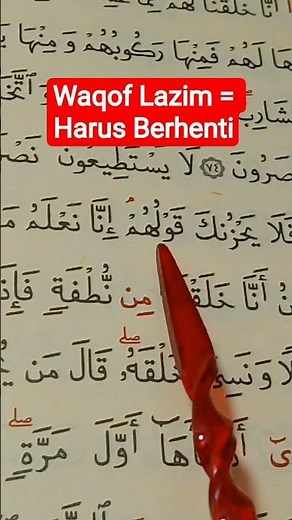 أَنَّا خَلَقْنَا لَهُم
هَا لَهُمْ فَمِنْهَا رَكُوبُهُمْ وَمِنْهَا يَ
Waqof Lazim =
Harus Berhenti
مَشَارِبُ
صَرُونَ ٧٤ لَا يَسْتَطِيعُونَ نَصْرَ
فَلَا يَحْزُنكَ قَوْلُهُمْ ۘ إِنَّا نَعْلَمُ مَ
نُ أَنَّا خَلَقْ مِن نُّطْفَةٍ فَإِذَ
لًا وَنَسِيَ خَلْقَهُۥ ۖ قَالَ مَن يُ
أَوَّلَ مَرَّةٍ ۖ